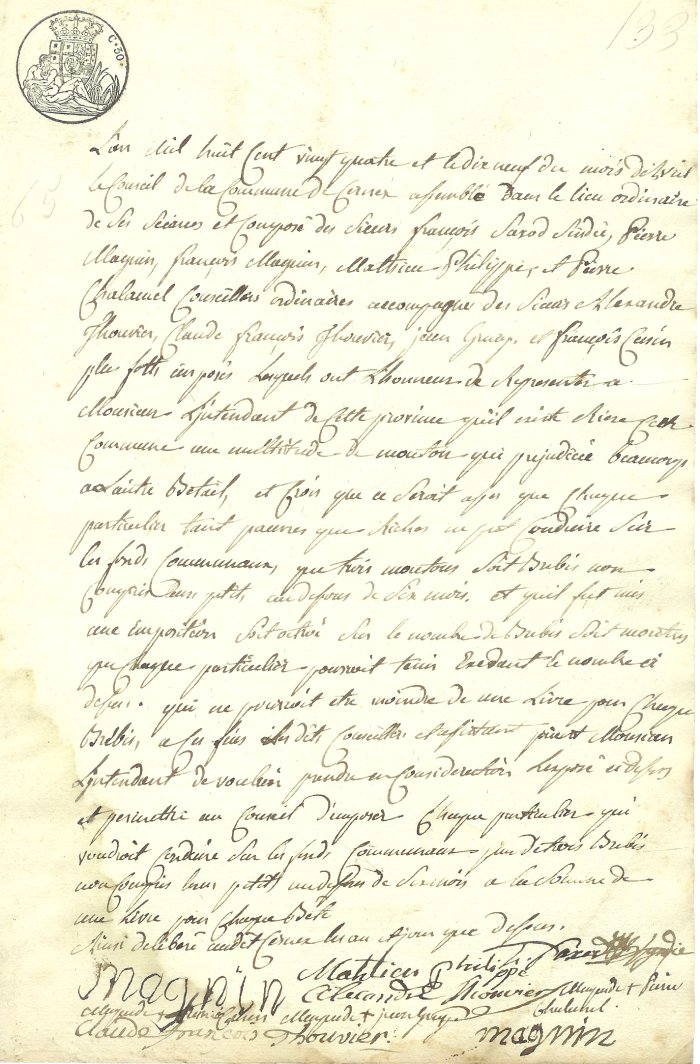 133
C. 50.
65
L'an Mil huit Cent vingt quatre et le dix neuf du mois d'Avril
le Conseil de la Commune de Cernex assemblé dans le lieu ordinaire
de ses séances et Composé des sieurs françois Saxod Sindic, Pierre
Magnin, françois Magnin, Mathieu Philippe, et Pierre
Chalamel Conseillers ordinaires accompagné des sieurs Alexandre
Thouvier, Claude françois Thouvier, jean et françois Cusin
plus forts imposés lesquels ont l'honneur de Représenter a
Monsieur L'intendant de Cette province qu'il existe Riere Cette
Commune une multitude de mouton qui prejudicie beaucoup
a L'autre Betail, et Crois que ce seroit assez que Chaque
particulier tant pauvres que Riches ne put Conduire sur
les fonds Communaux, que trois moutons soit Brebis non
Compris leurs petits au desous de six mois. et qu'il fut mis
une imposition soit octroi sur le nombre de Brebis soit moutons
que Chaque particulier pourroit tenir Exédant le nombre ci
dessus. qui ne pourroit etre moindre de une Livre pour Chaque
Brebis, a Ces fins les dits Conseillers et assistant prient Monsieur
L'intendant de vouloir prendre en Consideration L'exposé ci desus
et permettre au Conseil d'imposer Chaque particulier qui
voudroit Conduire sur les fonds Communaux plus de trois Brebis
non Compris leurs petits au desous de six mois a la Somme de
une Livre pour Chaque Bête
Ainsi deliberé audit Cernex les an et jour que dessus.
Mathieu philippe Saxod Syndic
magnin Alexandre Thouvier Marque de + Pierre
Marque de + françois Cusin Marque de + jean Chalamel
Claude françois Thouvier. magnin